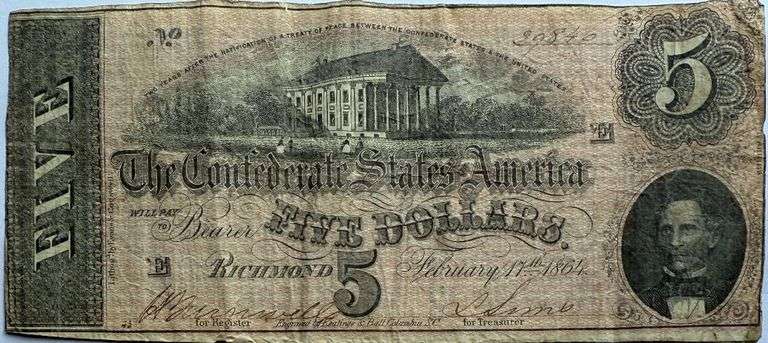 No
TWO YEARS AFTER THE RATIFICATION OF A TREATY OF PEACE BETWEEN THE CONFEDERATE STATES & THE UNITED STATES
5
FIVE
E
The Confederate States of America
WILL PAY
TO Bearer FIVE DOLLARS.
E RICHMOND 5 February 17th 1864.
for Register Engraved by Keatinge & Ball Columbia, S.C. for Treasurer